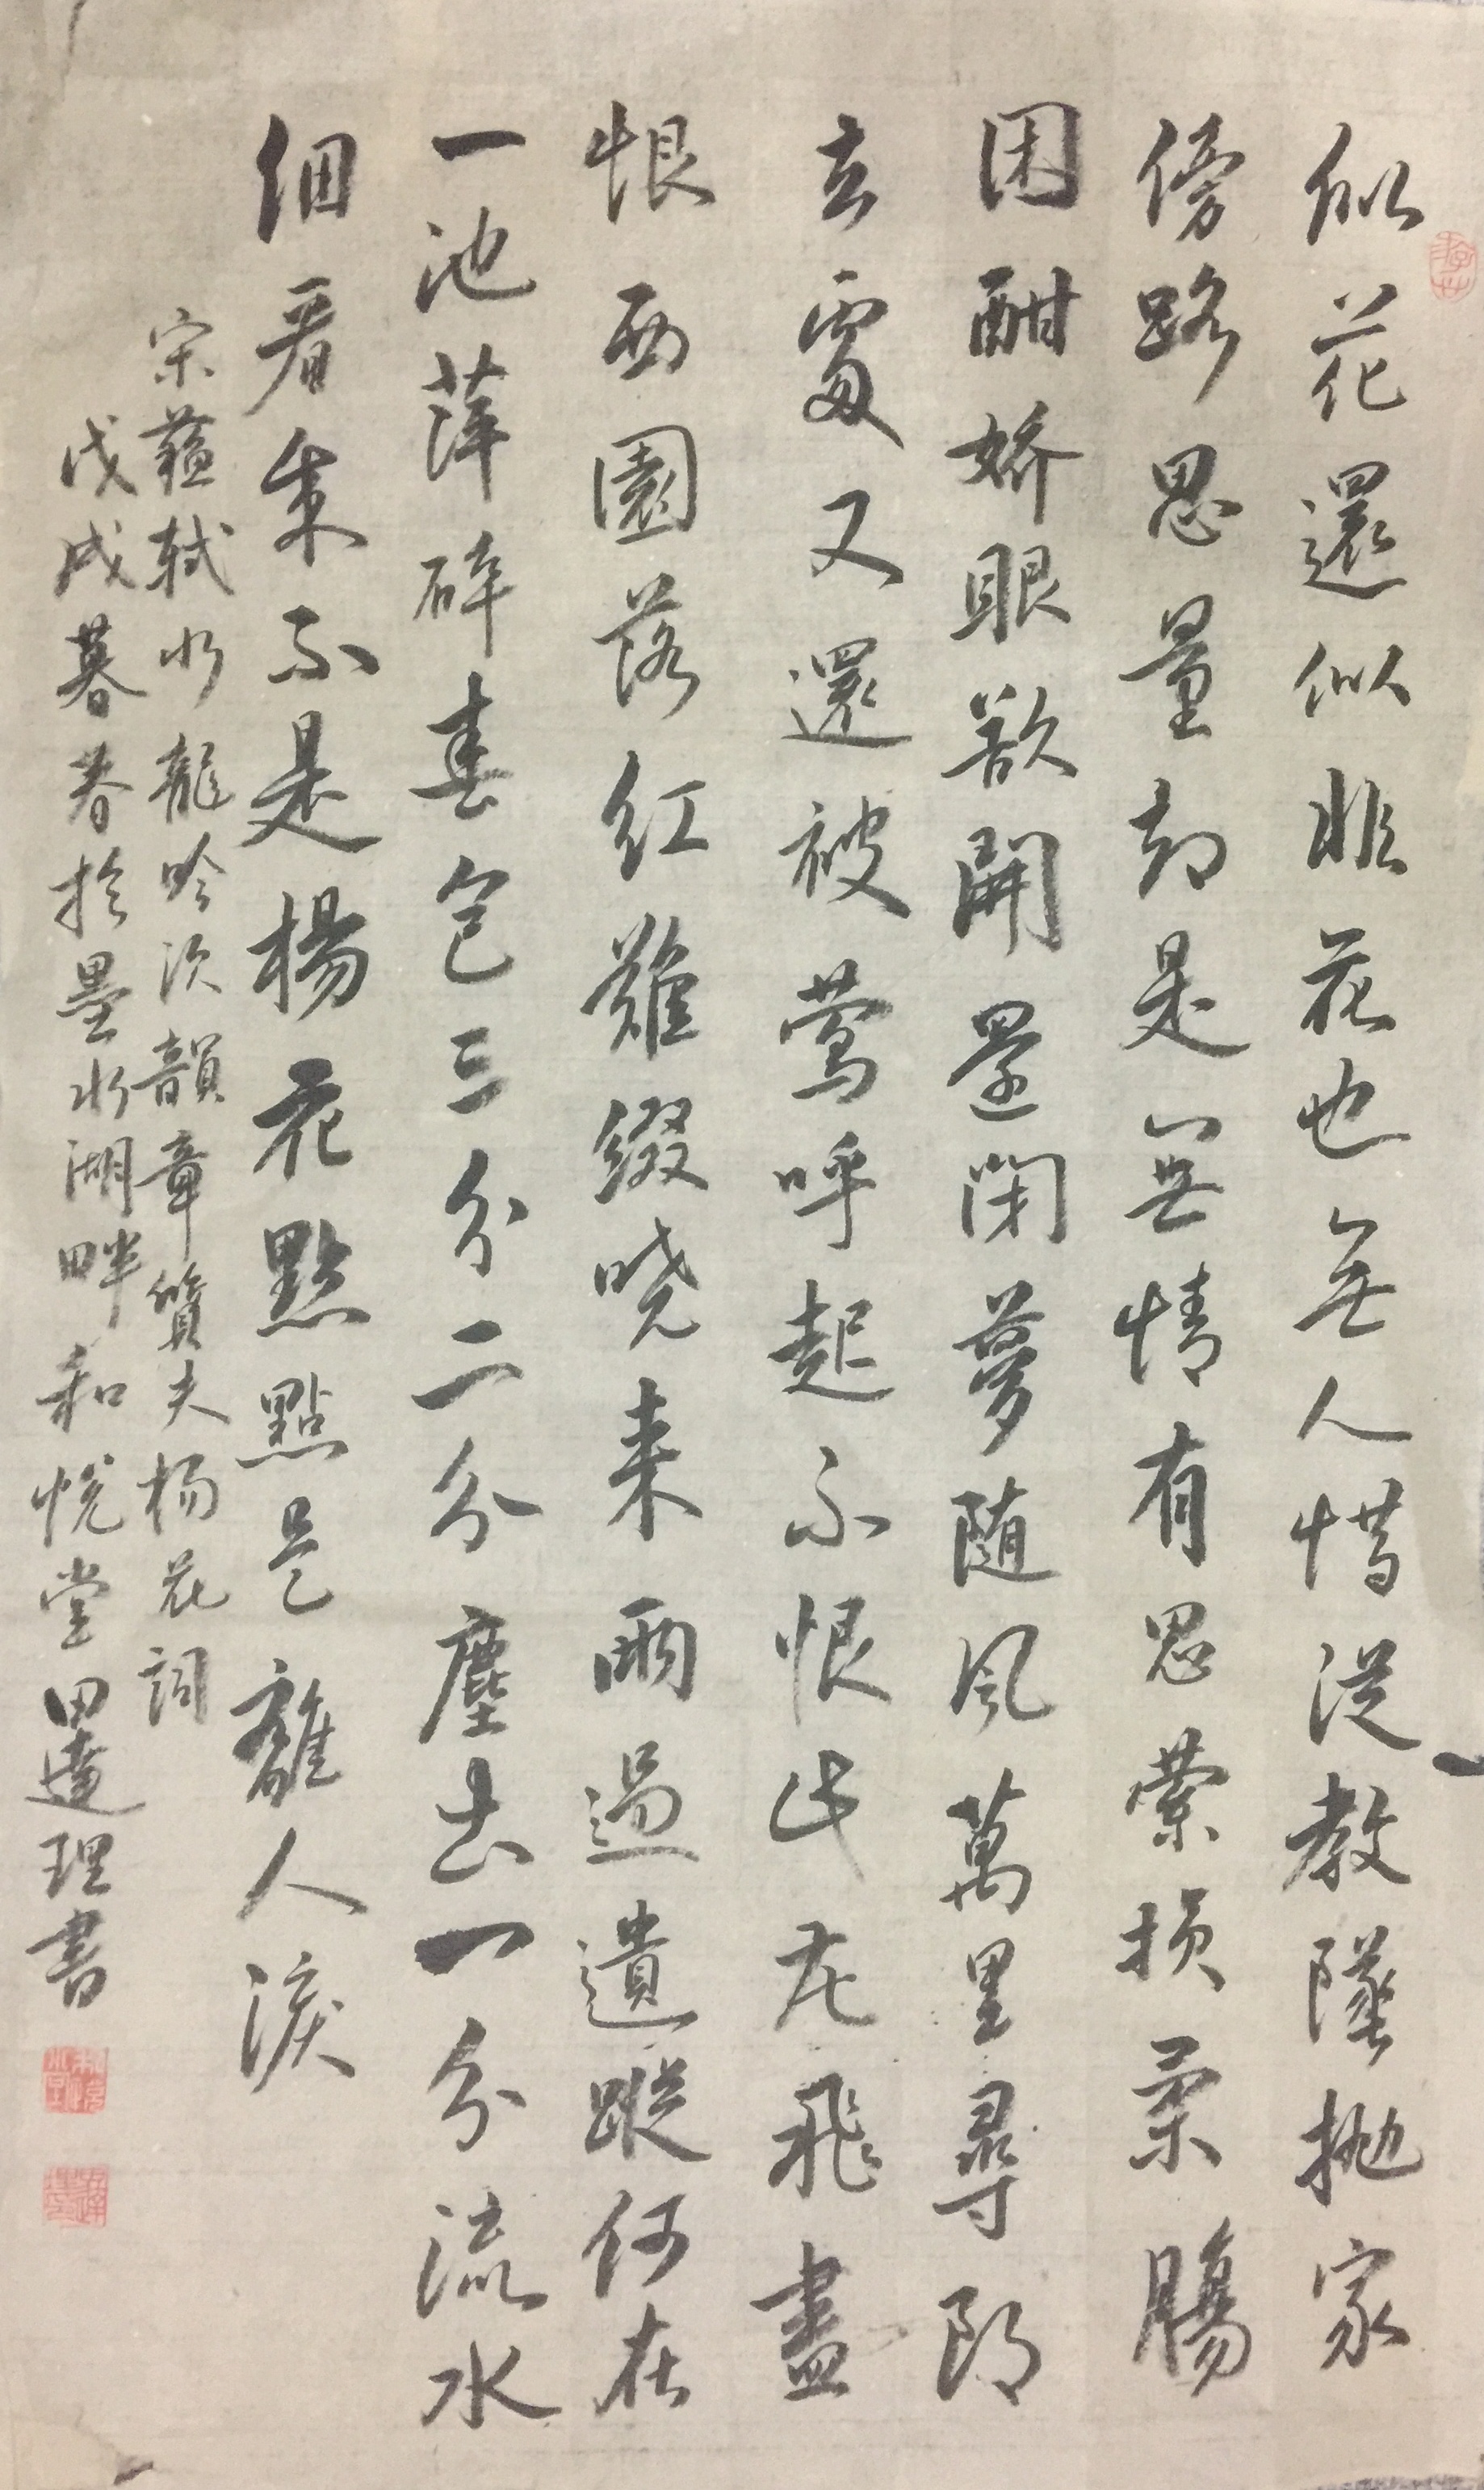 似花還似非花也無人惜從教墜抛家
傍路思量却是無情有思縈損柔腸
困酣嬌眼欲開還閉夢随風萬里尋郎
去處又還被鶯呼起不恨此花飛盡
恨西園落红難綴曉来雨過遺蹤何在
一池萍碎春色三分二分塵土一分流水
细看来不是楊花點點是離人淚
宋蘓軾水龍吟次韻章質夫杨花詞
戊戌暮春於墨水湖畔和悦堂田遠理書